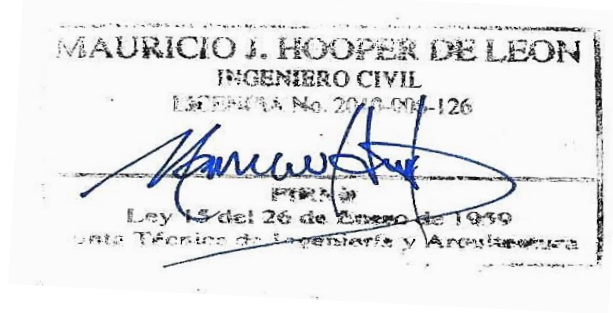 MAURICIO J. HOOPER DE LEON
INGENIERO CIVIL
LICENCIA No.
FIRMA
Ley 15 del 26 de Enero de 1959
Técnica de Ingeniería y Arquitectura